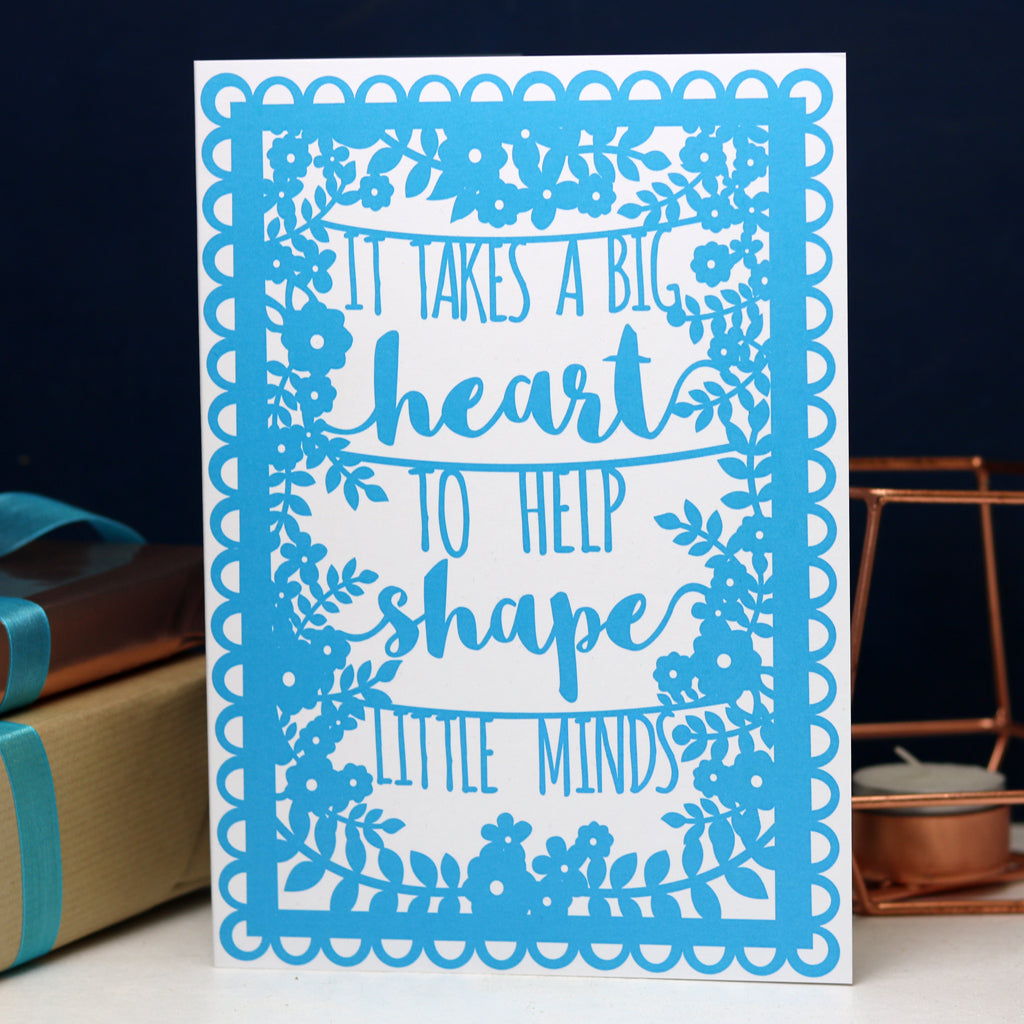 IT TAKES A BIG
heart
TO HELP
shape
LITTLE MINDS